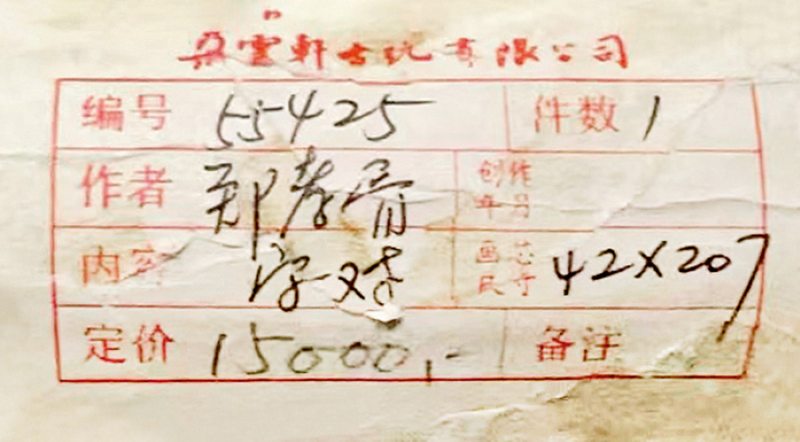 朵雲軒古玩有限公司
编号 55425 件数 1
作者 郑孝胥 创作年月
内容 字对 画芯尺寸 42X207
定价 15000,- 备注